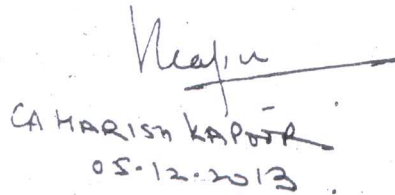 CA HARISH KAPOOR
05.12.2013